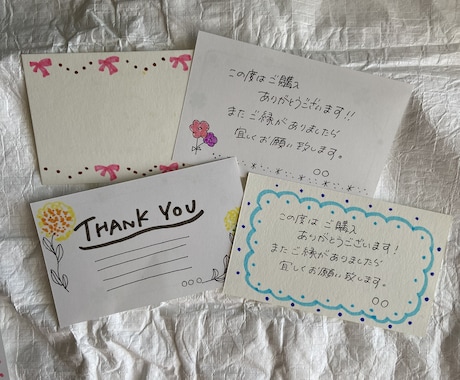 この度はご購入
ありがとうございます!!
またご縁がありましたら
宜しくお願い致します。
○○
THANK YOU
○○○
この度はご購入
ありがとうございます!
またご縁がありましたら
宜しくお願い致します。
○○